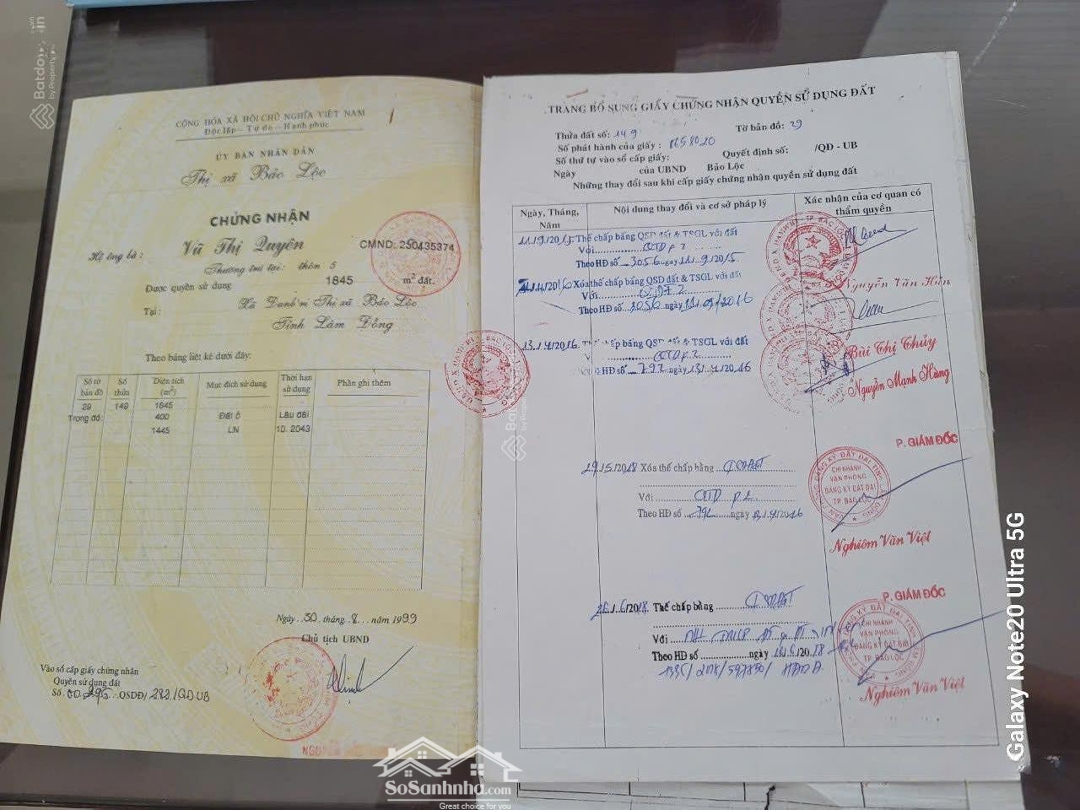 CỘNG HÒA XÃ HỘI CHỦ NGHĨA VIỆT NAM
Độc lập - Tự do - Hạnh phúc
ỦY BAN NHÂN DÂN
Thị xã Bảo Lộc
CHỨNG NHẬN
Hộ ông bà: Vũ Thị Quyên CMND: 250435374
Thường trú tại: thôn 5
Được quyền sử dụng 1845 m² đất.
Tại: Xã Đamb'ri Thị xã Bảo Lộc
Tỉnh Lâm Đồng
Theo bảng liệt kê dưới đây:
Số tờ bản đồ Số thửa Diện tích (m²) Mục đích sử dụng Thời hạn sử dụng Phần ghi thêm
29 149 1845
Trong đó: 400 Đất ở Lâu dài
1445 LN 10. 2043
Ngày 30 tháng 8 năm 1999
Chủ tịch UBND
Vào sổ cấp giấy chứng nhận
Quyền sử dụng đất
Số 00295 QSDĐ/ 282/QĐUB
TRANG BỔ SUNG GIẤY CHỨNG NHẬN QUYỀN SỬ DỤNG ĐẤT
Thửa đất số: 149 Tờ bản đồ: 29
Số phát hành của giấy:
Số thứ tự vào sổ cấp giấy: Quyết định số: /QĐ - UB
Ngày của UBND Bảo Lộc
Những thay đổi sau khi cấp giấy chứng nhận quyền sử dụng đất
Ngày, Tháng, Năm Nội dung thay đổi và cơ sở pháp lý Xác nhận của cơ quan có thẩm quyền
11/9/2015 Thế chấp bằng QSD đất & TSGL với đất
Với
Theo HĐ số 3056 ngày 11/9/2015
Nguyễn Văn Hiền
2016 Xóa thế chấp bằng QSD đất & TSGL với đất
Với
Theo HĐ số 3056 ngày
Bùi Thị Thủy
13/4/2016 Thế chấp bằng QSD đất & TSGL với đất
Với
Theo HĐ số 792 ngày 13/4/2016
Nguyễn Mạnh Hùng
29/5/2018 Xóa thế chấp bằng QSDĐ
Với QTD
Theo HĐ số 792 ngày 13/4/2016
P. GIÁM ĐỐC
CHI NHÁNH
VĂN PHÒNG
ĐĂNG KÝ ĐẤT ĐAI
TP. BẢO LỘC
Nghiêm Văn Việt
/6/2018 Thế chấp bằng QSDĐ
Với
Theo HĐ số ngày
P. GIÁM ĐỐC
CHI NHÁNH
VĂN PHÒNG
ĐĂNG KÝ ĐẤT ĐAI
TP. BẢO LỘC
Nghiêm Văn Việt
SoSanhnha.com
Great choice for you
Galaxy Note20 Ultra 5G